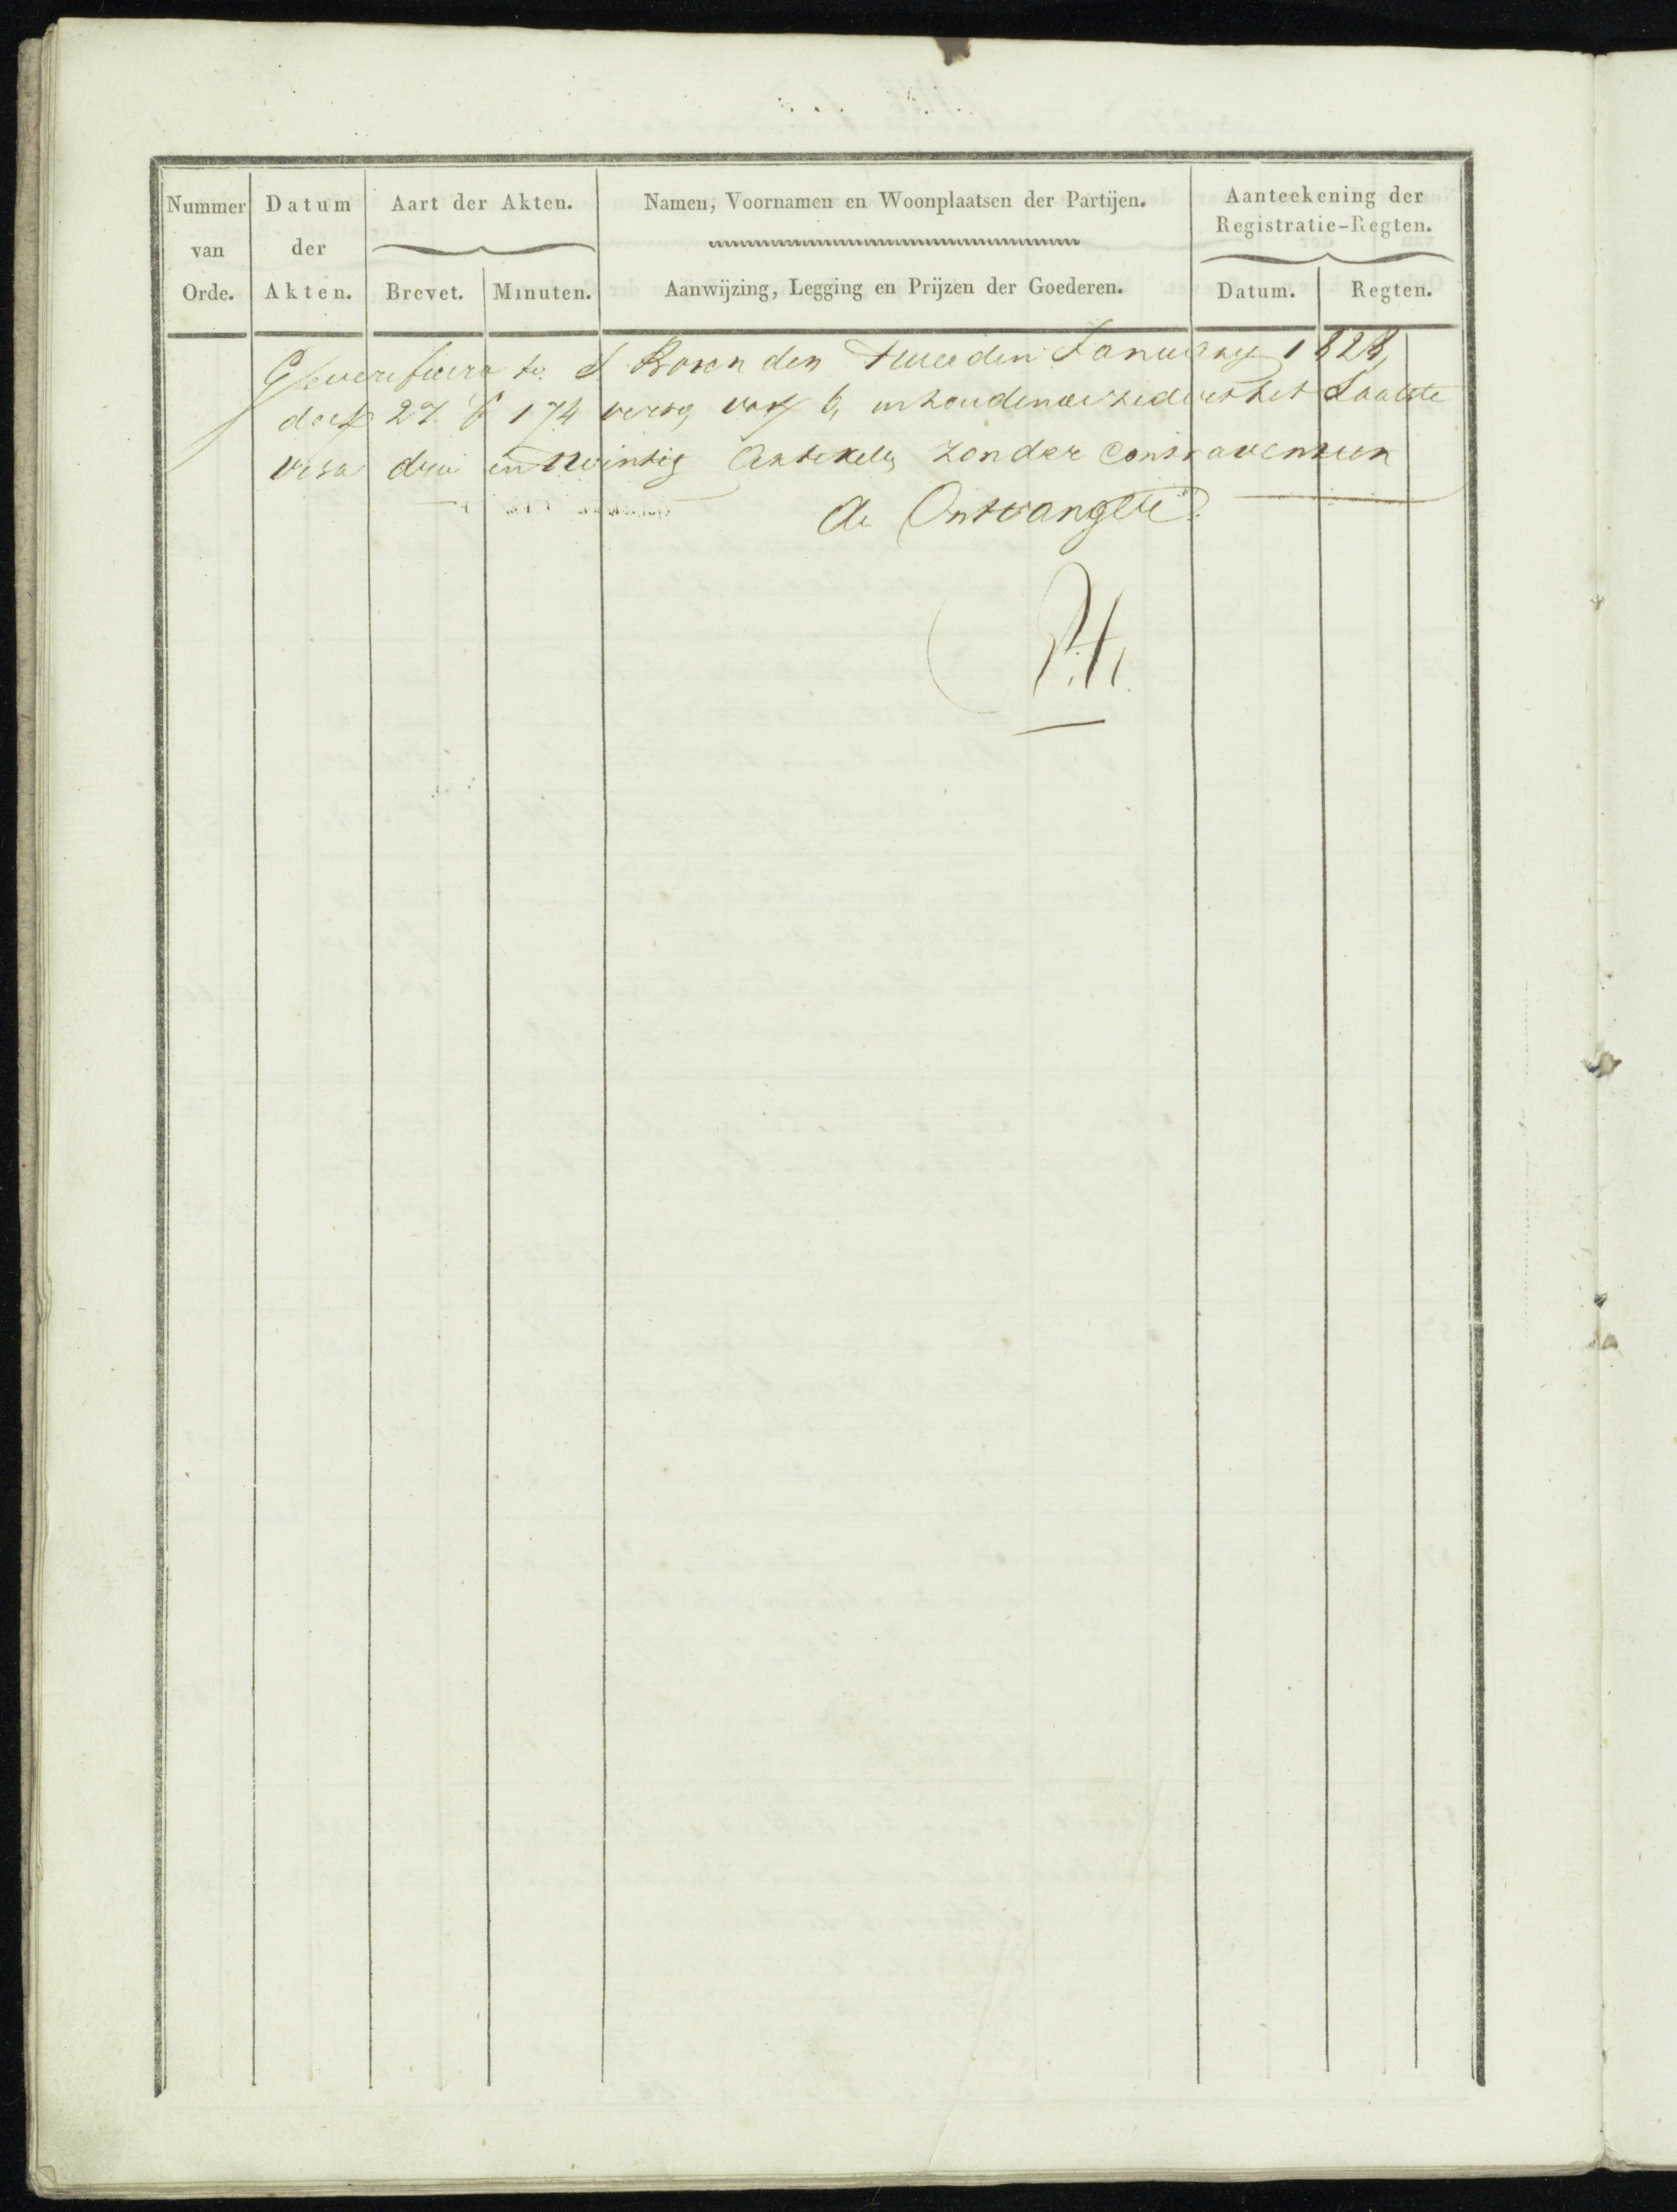 Nummer van Orde.
Datum der Akten.
Aart der Akten.
Brevet.
Minuten.
Namen, Voornamen en Woonplaatsen der Partijen.
Aanwijzing, Legging en Prijzen der Goederen.
Aanteekening der Registratie-Regten.
Datum.
Regten.
Geverifieerd te S Bosch den tweeden January 1828,
deel 27 f 174 verso, vak 6, inhoudende sedert het Laatste
visa drie en twintig Artikels zonder Contraventien
de Ontvanger